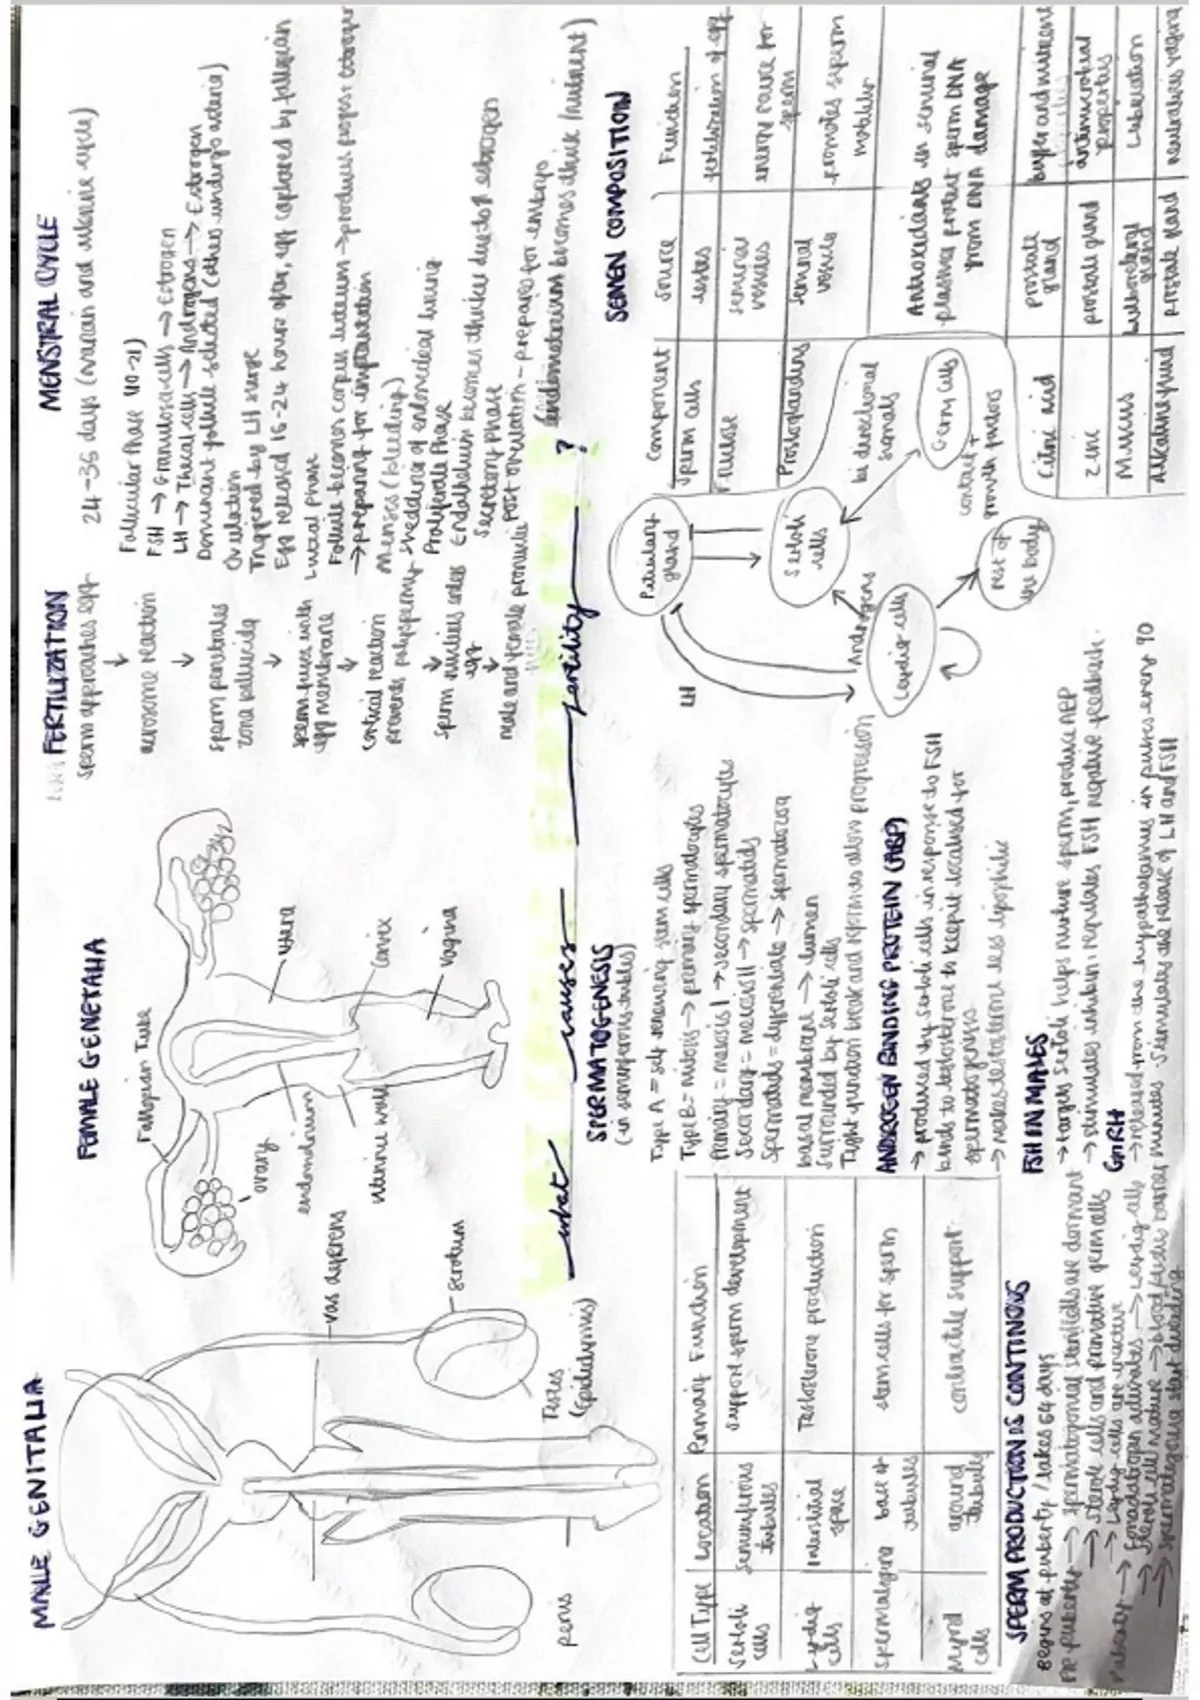 MALE GENITALIA
vas deferens
scrotum
Testes
(Epididymis)
penis
FEMALE GENETALIA
Fallopian Tube
ovary
endometrium
uterine wall
utera
Cervix
vagina
FERTILIZATION
sperm approaches egg
↓
acrosome reaction
↓
sperm penetrates
zona pellucida
↓
sperm fuses with
egg membrane
↓
cortical reaction
prevents polyspermy
↓
sperm nucleus enters
egg
↓
male and female pronuclei
MENSTRAL CYCLE
24-35 days (ovarian and uterine cycle)
Follicular Phase (10-21)
FSH → Granulosa cells → Estrogen
LH → Thecal cells → Androgens → Estrogen
Dominant follicle selected (others undergo atresia)
Ovulation
Triggered by LH surge
Egg released 16-24 hours after, egg captured by fallopian
Luteal Phase
Follicle becomes corpus luteum → produces
→ preparing for implantation
Menses (bleeding)
shedding of endometrial lining
Proliferate Phase
Endothelium becomes thicker due to estrogen
Secretory phase
post ovulation - prepares for embryo
(endometrium becomes thick / nutrient)
what causes fertility ?
Cell Type | Location | Primary Function
Sertoli cells | Seminiferous tubules | support sperm development
Leydig cells | Interstitial space | Testosterone production
Spermatogina | base of tubules | stem cells for sperm
Myoid cells | around tubule | contractile support
SPERM PRODUCTION IS CONTINOUS
Begins at puberty / takes 64 days
Pre puberty → spermatogonial stem cells are dormant
→ sterole cells and primative germ cells
→ Leydig cells are inactive
Puberty → Gonadotropin activates → Leydig cells
→ Sterole cell mature → blood testis barrier
→ Spermatogenesis start dividing
SPERMATOGENESIS
(in seminiferous tubules)
Type A = self renewing stem cells
Type B = mitosis → primary spermatocytes
Primary = meiosis I → secondary spermatocytes
Secondary = meiosis II → spermatids
Spermatids = differentiate → spermatozoa
basal membrane → lumen
surrounded by sertoli cells
Tight junction break and reforms allow progression
ANDROGEN BINDING PROTEIN (ABP)
→ produced by sertoli cells in response to FSH
binds to testosterone to keep it localised for
spermatogenesis
→ makes testosterone less lipophilic
FSH IN MALES
→ targets sertoli helps nurture sperm, produce ABP
→ stimulates inhibin; regulates FSH negative feedback
GnRH
→ released from the hypothalamus in pulses every 90
minutes. Stimulates the release of LH and FSH
Pituitary gland
LH
Sertoli cells
Androgens
Leydig cells
rest of the body
bi directional signals
Germ cells
contact + growth factors
SEMEN COMPOSITION
Component | Source | Function
Sperm cells | testes | fertilization of egg
Frutose | seminal vesicles | energy source for sperm
Prostoglandins | seminal vesicls | promotes sperm motility
Antioxcidants in seminal
plasma protect sperm DNA
from DNA damage
Citric acid | prostate gland | buffer and
Zinc | prostate gland | antimicrobial properties
Mucus | bulbourethral gland | Lubrication
Alkaline fluid | prostate gland | neutralises vagina